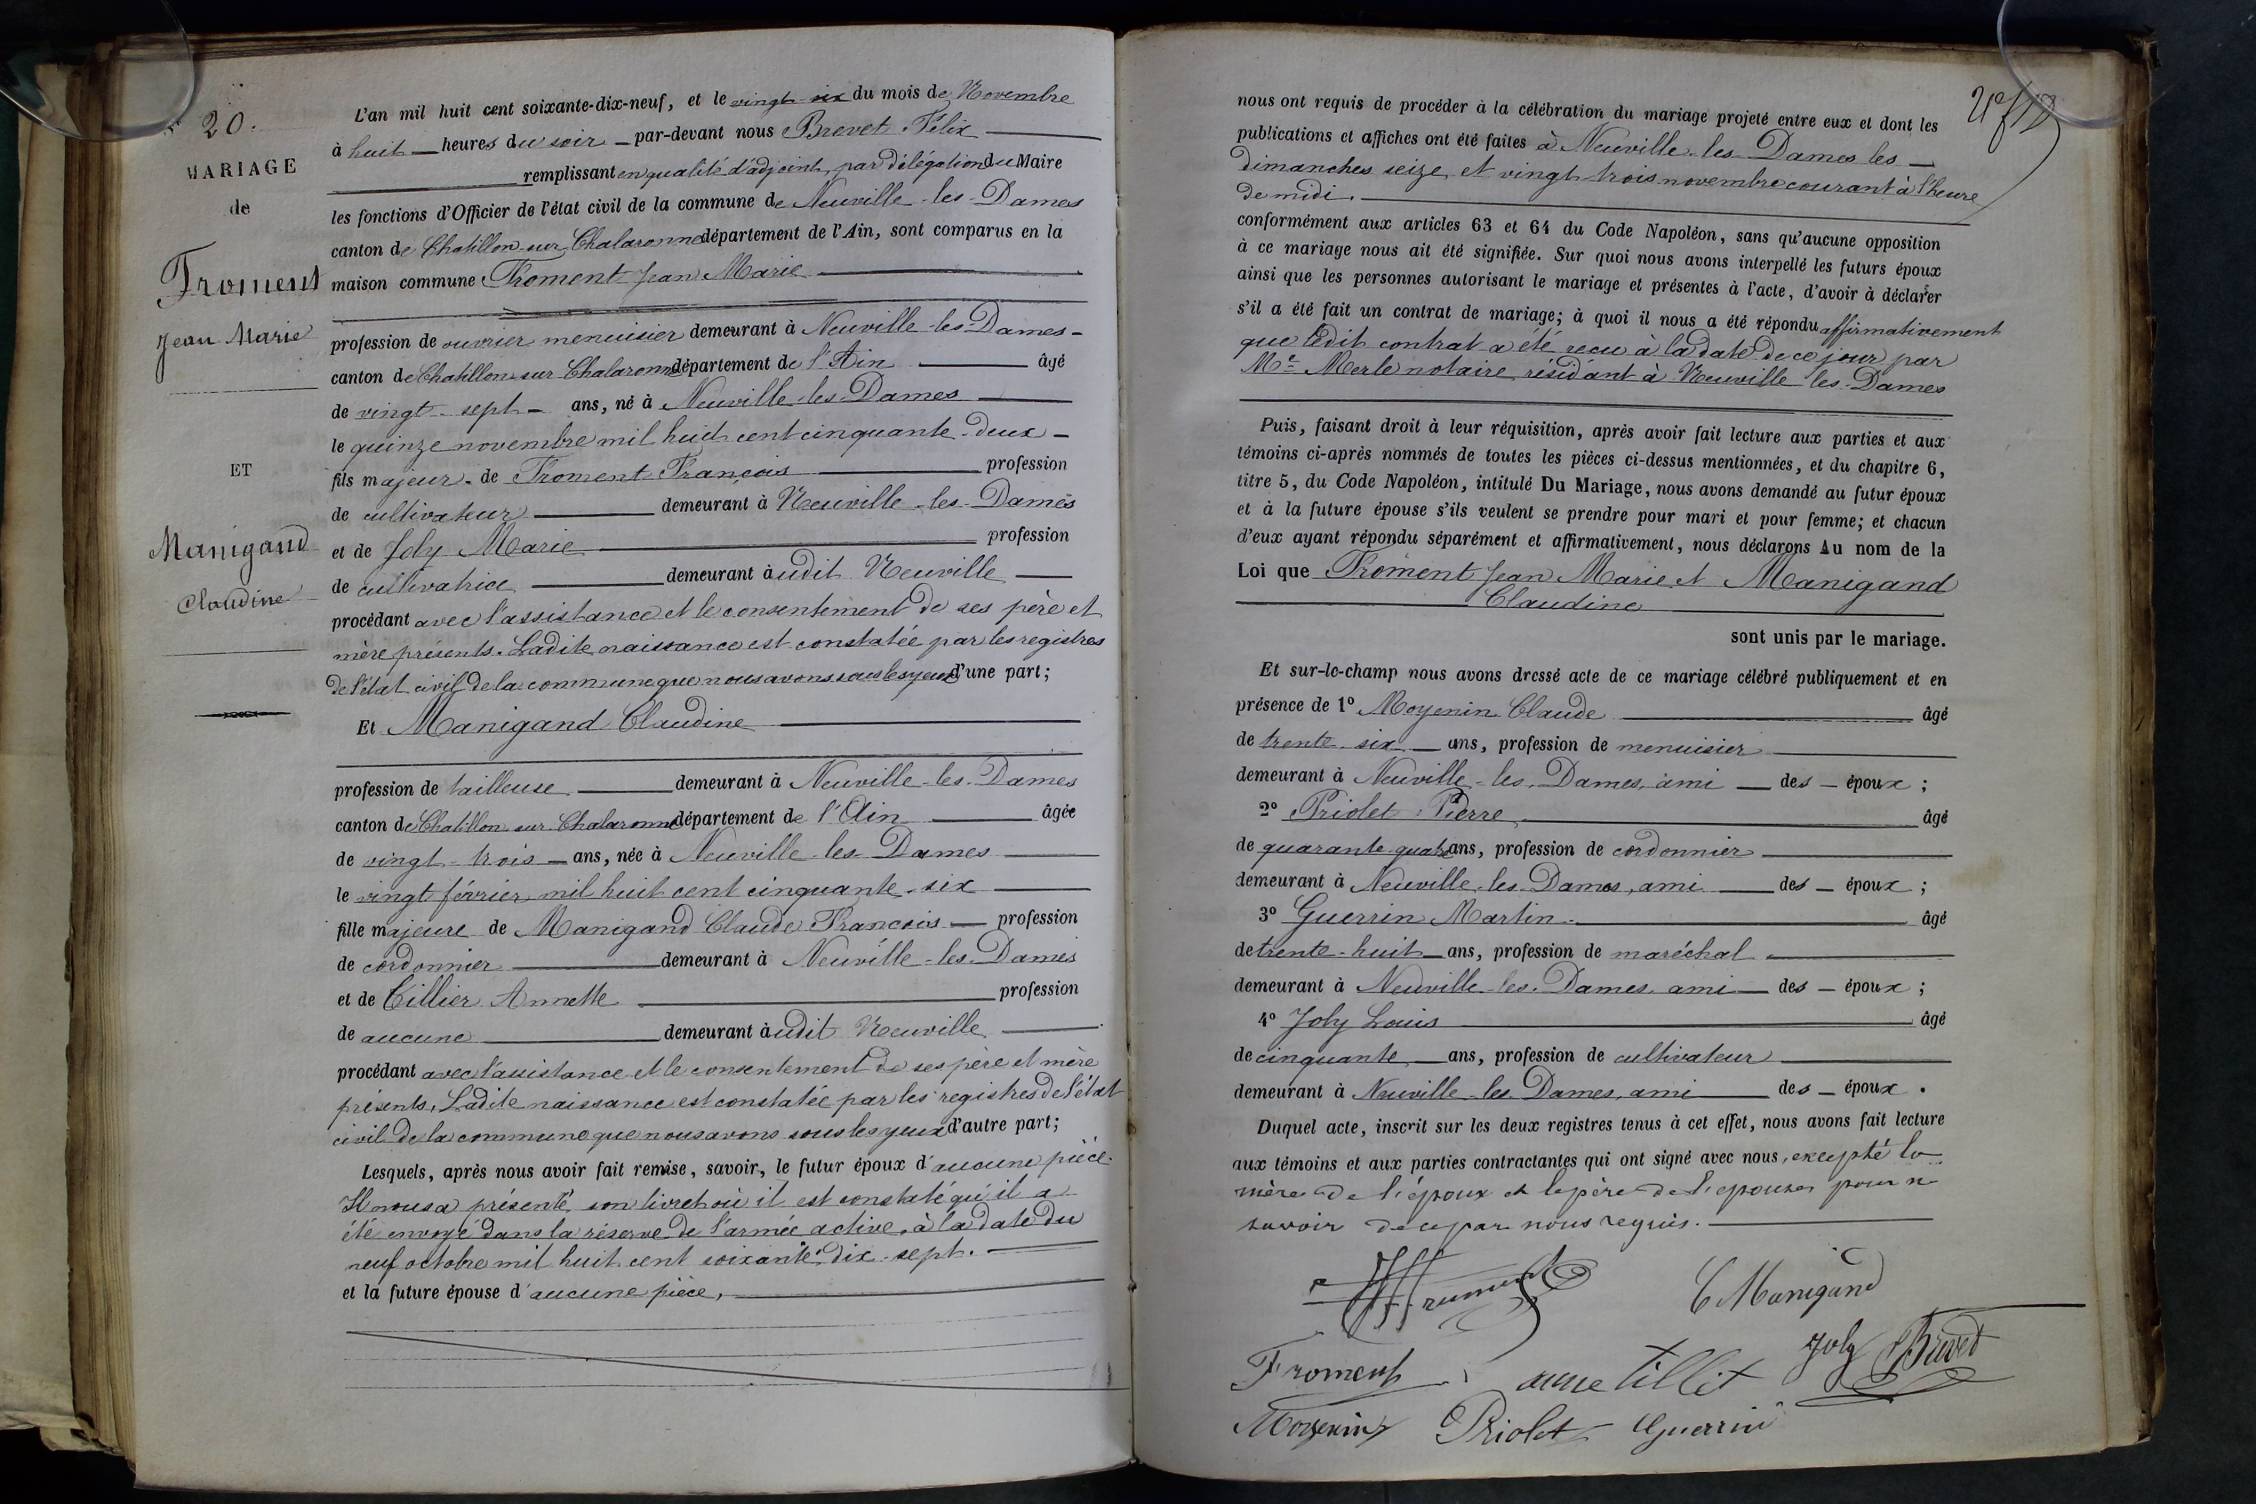 N° 20.
MARIAGE
de
Froment
Jean Marie
ET
Manigand
Claudine
L'an mil huit cent soixante-dix-neuf, et le vingt-six du mois de Novembre
à huit heures du soir par-devant nous Brevet Félix
remplissant en qualité d'adjoint, par délégation du Maire
les fonctions d'Officier de l'état civil de la commune de Neuville-les-Dames
canton de Chatillon-sur-Chalaronne département de l'Ain, sont comparus en la
maison commune Froment Jean Marie
profession de ouvrier menuisier demeurant à Neuville-les-Dames
canton de Chatillon-sur-Chalaronne département de l'Ain âgé
de vingt-sept ans, né à Neuville-les-Dames
le quinze novembre mil huit cent cinquante-deux
fils majeur de Froment François profession
de cultivateur demeurant à Neuville-les-Dames
et de Joly Marie profession
de cultivatrice demeurant audit Neuville
procédant avec l'assistance et le consentement de ses père et
mère présents. Ladite naissance est constatée par les registres
de l'état civil de la commune que nous avons sous les yeux d'une part;
Et Manigand Claudine
profession de tailleuse demeurant à Neuville-les-Dames
canton de Chatillon-sur-Chalaronne département de l'Ain âgée
de vingt-trois ans, née à Neuville-les-Dames
le vingt février mil huit cent cinquante-six
fille majeure de Manigand Claude François profession
de cordonnier demeurant à Neuville-les-Dames
et de Tillier Annette profession
de aucune demeurant audit Neuville
procédant avec l'assistance et le consentement de ses père et mère
présents. Ladite naissance est constatée par les registres de l'état
civil de la commune que nous avons sous les yeux d'autre part;
Lesquels, après nous avoir fait remise, savoir, le futur époux d'aucune pièce.
Il nous a présenté son livret où il est constaté qu'il a
été envoyé dans la réserve de l'armée active, à la date du
neuf octobre mil huit cent soixante-dix-sept.
et la future épouse d'aucune pièce.
nous ont requis de procéder à la célébration du mariage projeté entre eux et dont les
publications et affiches ont été faites à Neuville-les-Dames les
dimanches seize et vingt trois novembre courant à l'heure
de midi.
conformément aux articles 63 et 64 du Code Napoléon, sans qu'aucune opposition
à ce mariage nous ait été signifiée. Sur quoi nous avons interpellé les futurs époux
ainsi que les personnes autorisant le mariage et présentes à l'acte, d'avoir à déclarer
s'il a été fait un contrat de mariage; à quoi il nous a été répondu affirmativement
que ledit contrat a été reçu à la date de ce jour par
Me Merle notaire résidant à Neuville-les-Dames
Puis, faisant droit à leur réquisition, après avoir fait lecture aux parties et aux
témoins ci-après nommés de toutes les pièces ci-dessus mentionnées, et du chapitre 6,
titre 5, du Code Napoléon, intitulé Du Mariage, nous avons demandé au futur époux
et à la future épouse s'ils veulent se prendre pour mari et pour femme; et chacun
d'eux ayant répondu séparément et affirmativement, nous déclarons Au nom de la
Loi que Froment Jean Marie et Manigand
Claudine
sont unis par le mariage.
Et sur-le-champ nous avons dressé acte de ce mariage célébré publiquement et en
présence de 1° Moyenin Claude âgé
de trente-six ans, profession de menuisier
demeurant à Neuville-les-Dames, ami des époux;
2° Priolet Pierre âgé
de quarante quatre ans, profession de cordonnier
demeurant à Neuville-les-Dames, ami des époux;
3° Guerrin Martin âgé
de trente-huit ans, profession de maréchal
demeurant à Neuville-les-Dames, ami des époux;
4° Joly Louis âgé
de cinquante ans, profession de cultivateur
demeurant à Neuville-les-Dames, ami des époux.
Duquel acte, inscrit sur les deux registres tenus à cet effet, nous avons fait lecture
aux témoins et aux parties contractantes qui ont signé avec nous, excepté la
mère de l'époux et le père de l'épouse pour ne
savoir de ce par nous requis.
Froment
C Manigand
Froment
anne tillit
Joly
Brevet
Moyenin
Priolet
Guerrin